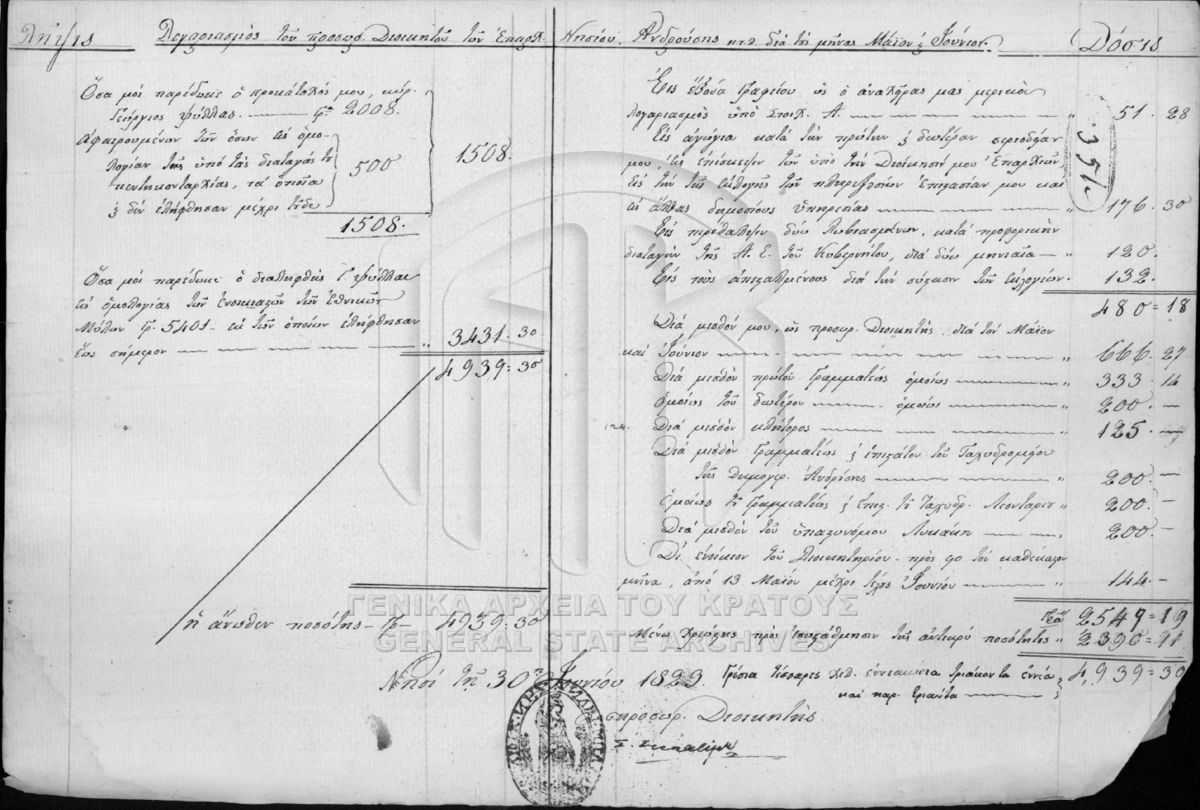 Λῆψις
Λογαριασμὸς τοῦ προσωρ. Διοικητοῦ τῶν Ἐπαρχ. Νησίου, Ἀνδρούσης κτλ. διὰ τὰς μῆνας Μάϊον ξ Ἰούνιον.
Δόσις
Ὅσα μοὶ παρέδωκε ὁ προκάτοχός μου, κύρ.
Γεώργιος Ψύλλας. 2008.
Ἀφαιρουμένων τῶν ὅσων εἰς ὁμο-
λογίαν τῆς ὑπὸ τὰς διαταγὰς
πεντηκονταρχίας, τὰ ὁποῖα
ξ δὲν ἐλήφθησαν μέχρι τοῦδε
500
1508.
1508.
Ὅσα μοὶ παρέδωκε ὁ διαληφθεὶς Γ. Ψύλλας
εἰς ὁμολογίας τῶν ἐνοικιαστῶν τῶν Ἐθνικῶν
Μύλων 5401 ἐκ τῶν ὁποίων ἐλήφθησαν
ἕως σήμερον 3431. 30
4939=30
ἡ ἄνωθεν ποσότης 4939=30
Εἰς ἔξοδα Γραφείου, ὡς ὁ
λογαριασμὸς ὑπὸ Στοιχ. Α. 51. 28
Εἰς ἀγώγια κατὰ τὴν πρώτην ξ δευτέραν περιοδείαν
μου εἰς ἐπίσκεψιν τῶν ὑπὸ τὴν Διοίκησίν μου Ἐπαρχιῶν
εἰς τὴν τῆς ἐκλογῆς τῶν πληρεξουσίων ἐπιστασίαν μου καὶ
εἰς ἄλλας δημοσίους ὑπηρεσίας 176. 30
351
Εἰς περίθαλψιν δύω, κατὰ προφορικὴν
διαταγὴν τῆς Α. Ε. τοῦ Κυβερνήτου, διὰ δύω μηνιαῖα 120.
Εἰς τοὺς ἀπεσταλμένους διὰ τὴν 132.
480=18
Διὰ μισθόν μου, ὡς προσωρ. Διοικητής, διὰ τὸν Μάϊον
καὶ Ἰούνιον 666. 27
Διὰ μισθὸν πρώτου Γραμματέως ὁμοίως 333. 14
Ὁμοίως τοῦ δευτέρου ὁμοίως 200. —
Διὰ μισθὸν κλητῆρος 125. —
Διὰ μισθὸν Γραμματέως ξ ἐπιστάτου τοῦ Ταχυδρομείου
τῆς Δημογερ. Ἀνδρούσης 200. —
Ὁμοίως τοῦ Γραμματέως ξ ἐπιστ. τοῦ Ταχυδρ. Λεονταρίου 200. —
Διὰ μισθὸν τοῦ ὑπαστυνόμου Λυκάκη 200. —
Δι' ἐνοίκιον τοῦ Διοικητηρίου πρὸς 90 τὸν καθέκαστον
μῆνα, ἀπὸ 13 Μαΐου μέχρι τέλος Ἰουνίου 144. —
2549=19
Μένω χρεώστης πρὸς ἐξισάθμησιν τῆς ἀντικρὺ ποσότητος 2390=11
4,939=30
Γρόσια τέσσαρες χιλ. ἐννεακόσια τριάκοντα ἐννέα
καὶ παρ. τριάντα
Νησὶ τῇ 30ῃ Ἰουνίου 1829
ὁ προσωρ. Διοικητής
ΓΕΝΙΚΑ ΑΡΧΕΙΑ ΤΟΥ ΚΡΑΤΟΥΣ
GENERAL STATE ARCHIVES